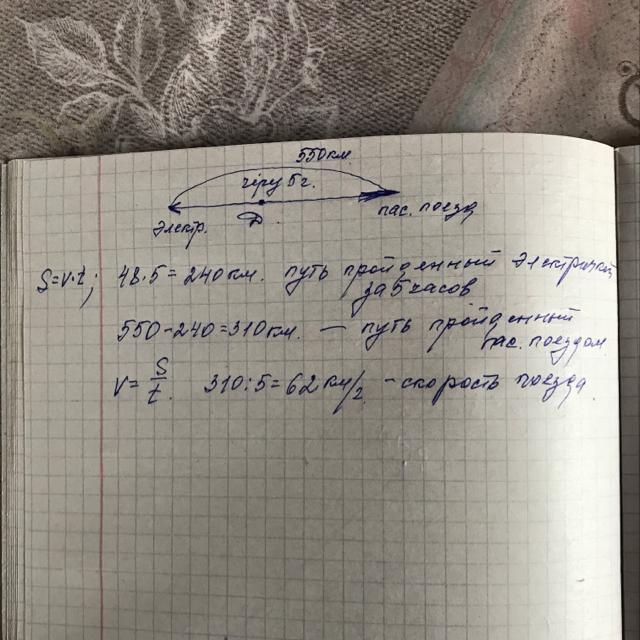 550км
через 5г.
электр.
пас. поезд
S=v·t; 48·5=240км. путь пройденный электричкой
за 5 часов
550-240=310км. — путь пройденный
пас. поездом
v= S/t. 310:5=62 км/г - скорость поезда